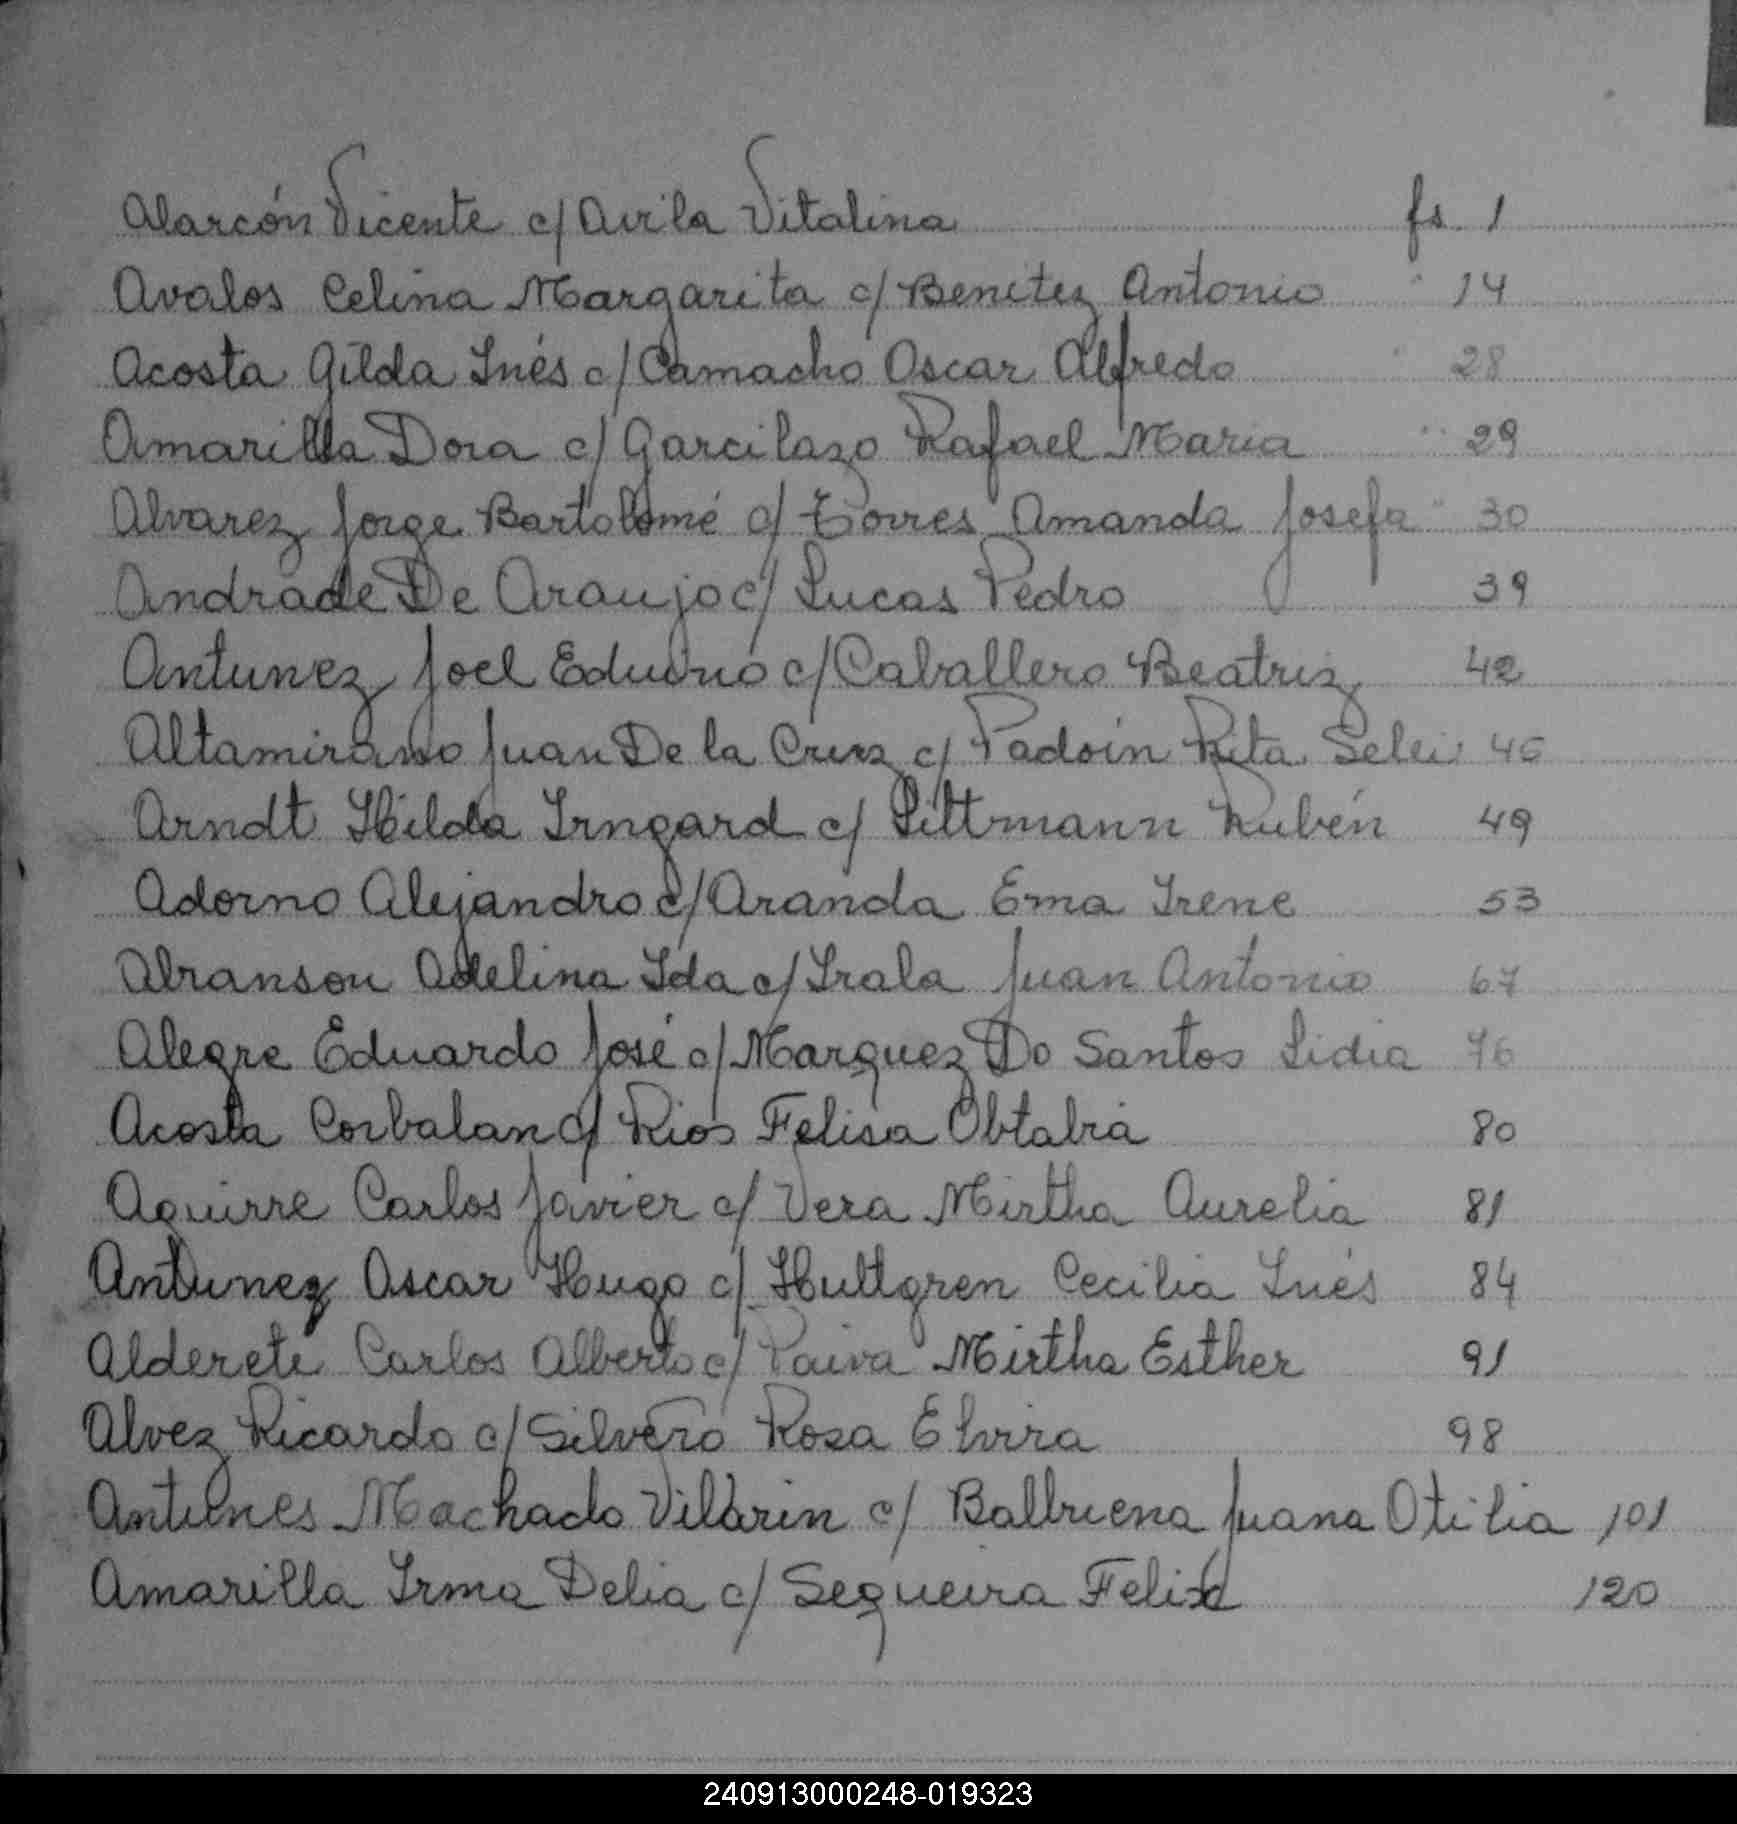 Alarcón Vicente c/ Avila Vitalina fs 1
Avalos Celina Margarita c/ Benitez Antonio " 14
Acosta Gilda Inés c/ Camacho Oscar Alfredo " 28
Amarilla Dora c/ Garcilazo Rafael Maria " 29
Alvarez Jorge Bartolomé c/ Torres Amanda Josefa " 30
Andrade De Araujo c/ Lucas Pedro 39
Antunez Joel Eduvino c/ Caballero Beatriz 42
Altamirano Juan De la Cruz c/ Padoin Rita 46
Arndt Hilda Irngard c/ Littmann Rubén 49
Adorno Alejandro c/ Aranda Ema Irene 53
Adelina Ida c/ Irala Juan Antonio 67
Alegre Eduardo José c/ Marquez Do Santos Lidia 76
Acosta Corbalan c/ Rios Felisa 80
Aguirre Carlos Javier c/ Vera Mirtha Aurelia 81
Antunez Oscar Hugo c/ Hultgren Cecilia Inés 84
Alderete Carlos Alberto c/ Paiva Mirtha Esther 91
Alvez Ricardo c/ Silvero Rosa Elvira 98
Antunes Machado Vilarin c/ Balbuena Juana Otilia 101
Amarilla Irma Delia c/ Sequeira Felix 120
240913000248-019323